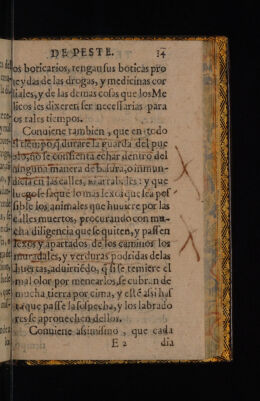 DE PESTE. 14
os boticarios, tengan sus boticas pro
ydas de las drogas, y medicinas cor
iales, y de las demas cosas que los Me
licos les dixeren ser necessarias para
os tales tiempos.
Conuiene tambien, que en todo
el tiempo q̃ durare la guarda del pue
blo, no se consienta echar dentro del
ninguna manera de basura, o inmun-
dicia en las calles, ni arrabales: y que
luego se saque lo mas lexos que sea pos
sible los animales que huuiere por las
calles muertos, procurando con mu-
cha diligencia que se quiten, y passen
lexos y apartados de los caminos los
muradales, y verduras podridas de las
huertas, aduirtiẽdo, q̃ si se temiere el
mal olor por menearlos, se cubran de
mucha tierra por cima, y estẽ assi has
ta que passe la sospecha, y los labrado
res se aprouechen dellos.
Conuiene assimismo, que cada
E 2 dia